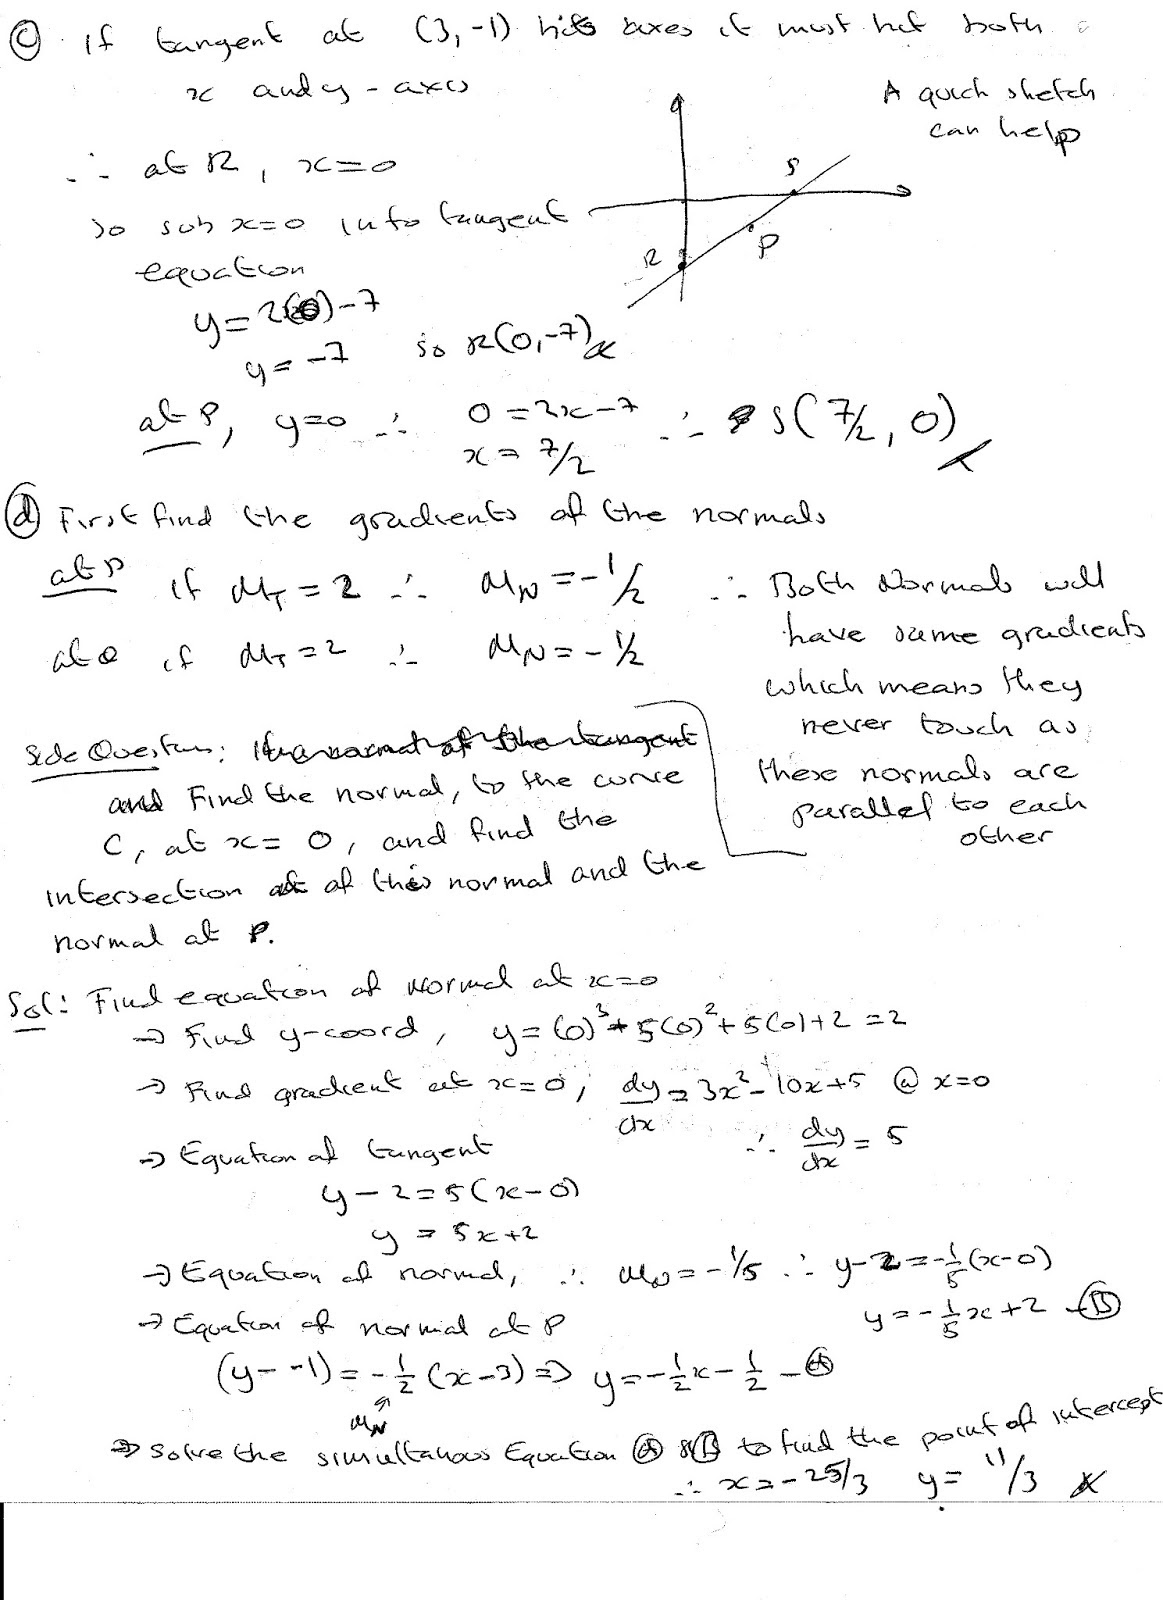 (c) If tangent at (3,-1) hits axes it must hit both
x and y-axis
A quick sketch
can help
∴ at R, x=0
so sub x=0 into tangent
equation
S
P
R
y=2(0)-7
y=-7 so R(0,-7)
at S, y=0 ∴ 0=2x-7 ∴ S(7/2, 0)
x=7/2
(d) First find the gradients of the normals
at P if M_T=2 ∴ M_N=-1/2
at Q if M_T=2 ∴ M_N=-1/2
∴ Both Normals will
have same gradients
which means they
never touch as
these normals are
parallel to each
other
Side Question:
Find the normal, to the curve
C, at x=0, and find the
intersection of this normal and the
normal at P.
Sol: Find equation of normal at x=0
→ Find y-coord, y=(0)³+5(0)²+5(0)+2=2
→ Find gradient at x=0, dy/dx=3x²-10x+5 @ x=0
∴ dy/dx=5
→ Equation of tangent
y-2=5(x-0)
y=5x+2
→ Equation of normal, ∴ M_N=-1/5 ∴ y-2=-1/5(x-0)
y=-1/5x+2 -(B)
→ Equation of normal at P
(y--1)=-1/2(x-3)=> y=-1/2x-1/2 -(A)
M_N
=> Solve the simultanous Equation (A) & (B) to find the point of intercept
∴ x=-25/3 y=11/3